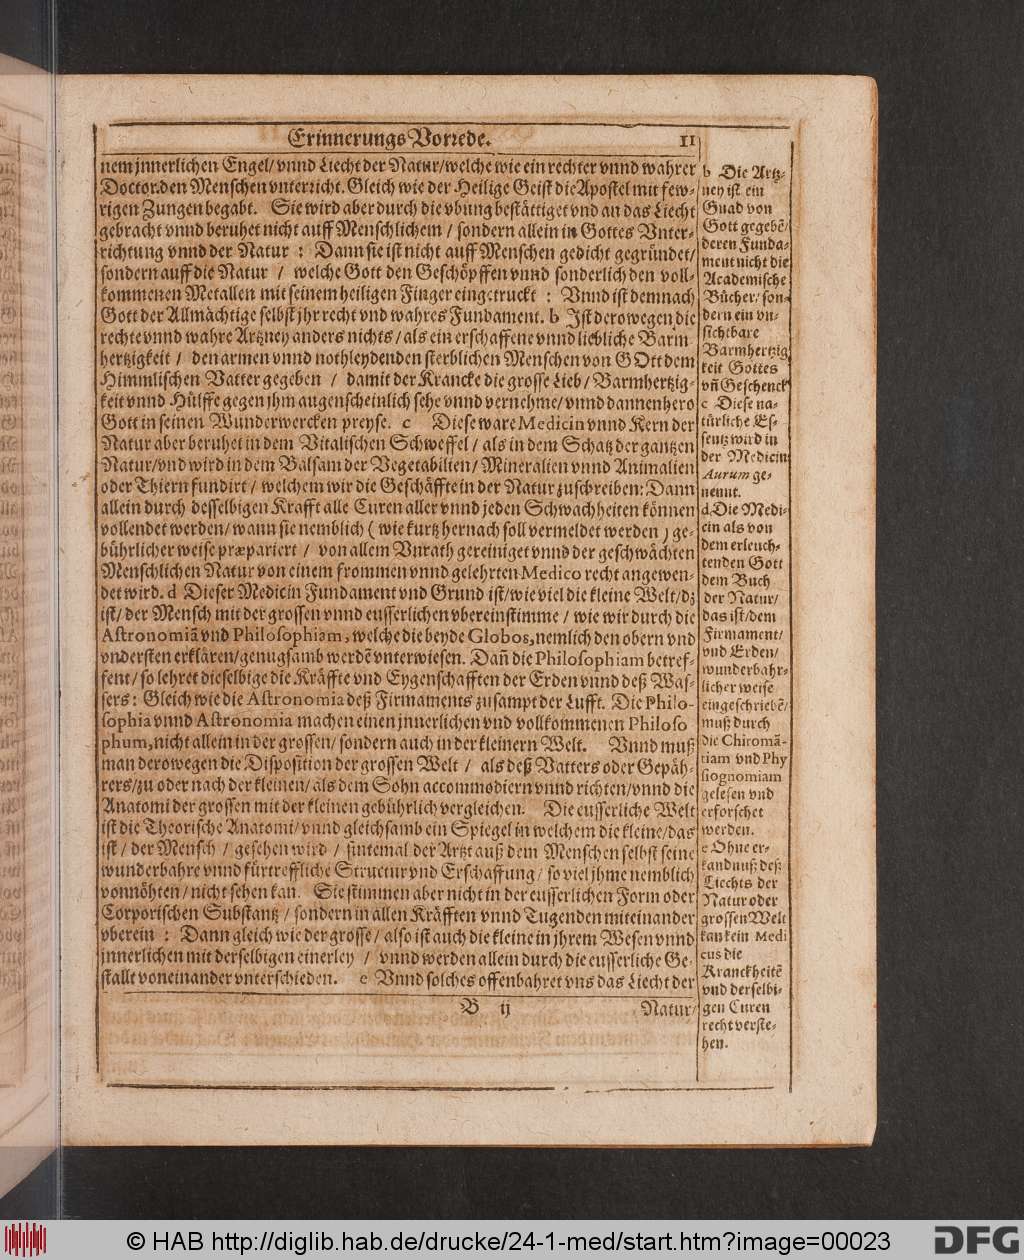 Erinnerungs Vorrede. 11
nem jnnerlichen Engel/ vnnd Liecht der Natur/welche wie ein rechter vnnd wahrer
Doctor.den Menschen vnterricht. Gleich wie der Heilige Geist die Apostel mit few-
rigen Zungen begabt. Sie wird aber durch die vbung bestättiget vnd an das Liecht
gebracht vnnd beruhet nicht auff Menschlichem / sondern allein in Gottes Vnter-
richtung vnnd der Natur : Dann sie ist nicht auff Menschen gedicht gegründet/
sondern auff die Natur / welche Gott den Geschöpffen vnnd sonderlich den voll-
kommenen Metallen mit seinem heiligen Finger eingetruckt : Vnnd ist demnach
Gott der Allmächtige selbst jhr recht vnd wahres Fundament. b Ist derowegen die
rechte vnnd wahre Artzney anders nichts / als ein erschaffene vnnd liebliche Barm
hertzigkeit / den armen vnnd nothleydenden sterblichen Menschen von GOtt dem
Himmlischen Vatter gegeben / damit der Krancke die grosse Lieb / Barmhertzig-
keit vnnd Hülffe gegen jhm augenscheinlich sehe vnnd vernehme / vnnd dannenhero
Gott in seinen Wunderwercken preyse. c Diese ware Medicin vnnd Kern der
Natur aber beruhet in dem Vitalischen Schweffel / als in dem Schatz der gantzen
Natur/vnd wird in dem Balsam der Vegetabilien/ Mineralien vnnd Animalien
oder Thiern fundirt / welchem wir die Geschäffte in der Natur zuschreiben: Dann
allein durch desselbigen Krafft alle Curen aller vnnd jeden Schwachheiten können
vollendet werden/ wann sie nemblich ( wie kurtz hernach soll vermeldet werden ) ge-
bührlicher weise præpariert / von allem Vnrath gereiniget vnnd der geschwächten
Menschlichen Natur von einem frommen vnnd gelehrten Medico recht angewen-
det wird. d Dieser Medicin Fundament vnd Grund ist/ wie viel die kleine Welt/ dz
ist/ der Mensch mit der grossen vnnd eusserlichen vbereinstimme / wie wir durch die
Astronomiã vnd Philosophiam, welche die beyde Globos, nemlich den obern vnd
vndersten erklären/genugsamb werdẽ vnterwiesen. Dañ die Philosophiam betref-
fent/ so lehret dieselbige die Kräffte vnd Eygenschafften der Erden vnnd deß Was-
sers: Gleich wie die Astronomia deß Firmaments zusampt der Lufft. Die Philo-
sophia vnnd Astronomia machen einen jnnerlichen vnd vollkommenen Philoso
phum, nicht allein in der grossen/ sondern auch in der kleinern Welt. Vnnd muß
man derowegen die Disposition der grossen Welt / als deß Vatters oder Gepäh-
rers/zu oder nach der kleinen/als dem Sohn accommodiern vnnd richten/vnnd die
Anatomi der grossen mit der kleinen gebührlich vergleichen. Die eusserliche Welt
ist die Theorische Anatomi/ vnnd gleichsamb ein Spiegel in welchem die kleine/das
ist / der Mensch / gesehen wird / sintemal der Artzt auß dem Menschen selbst seine
wunderbahre vnnd fürtreffliche Structur vnd Erschaffung/ so viel jhme nemblich
vonnöhten / nicht sehen kan. Sie stimmen aber nicht in der eusserlichen Form oder
Corporischen Substantz / sondern in allen Kräfften vnnd Tugenden miteinander
vberein : Dann gleich wie der grosse / also ist auch die kleine in jhrem Wesen vnnd
jnnerlichen mit derselbigen einerley / vnnd werden allein durch die eusserliche Ge-
stallt voneinander vnterschieden. e Vnnd solches offenbahret vns das Liecht der
B ij Natur/
b Die Artz-
ney ist ein
Gnad von
Gott gegebẽ/
deren Funda-
ment nicht die
Academische
Bücher/ son-
dern ein vn-
sichtbare
Barmhertzig
keit Gottes
vñ Geschenck
c Diese na-
türliche Es-
sentz wird in
der Medicin
Aurum ge-
nennt.
d.Die Medi-
cin als von
dem erleuch-
tenden Gott
dem Buch
der Natur/
das ist/dem
Firmament/
vnd Erden/
wunderbahr-
licher weise
eingeschriebẽ/
muß durch
die Chiromã-
tiam vnd Phy
siognomiam
gelesen vnd
erforschet
werden.
e Ohne er-
kandnuß deß
Liechts der
Natur oder
grossen Welt
kan kein Medi
cus die
Kranckheitẽ
vnd derselbi-
gen Curen
recht verste-
hen.
© HAB http://diglib.hab.de/drucke/24-1-med/start.htm?image=00023
DFG